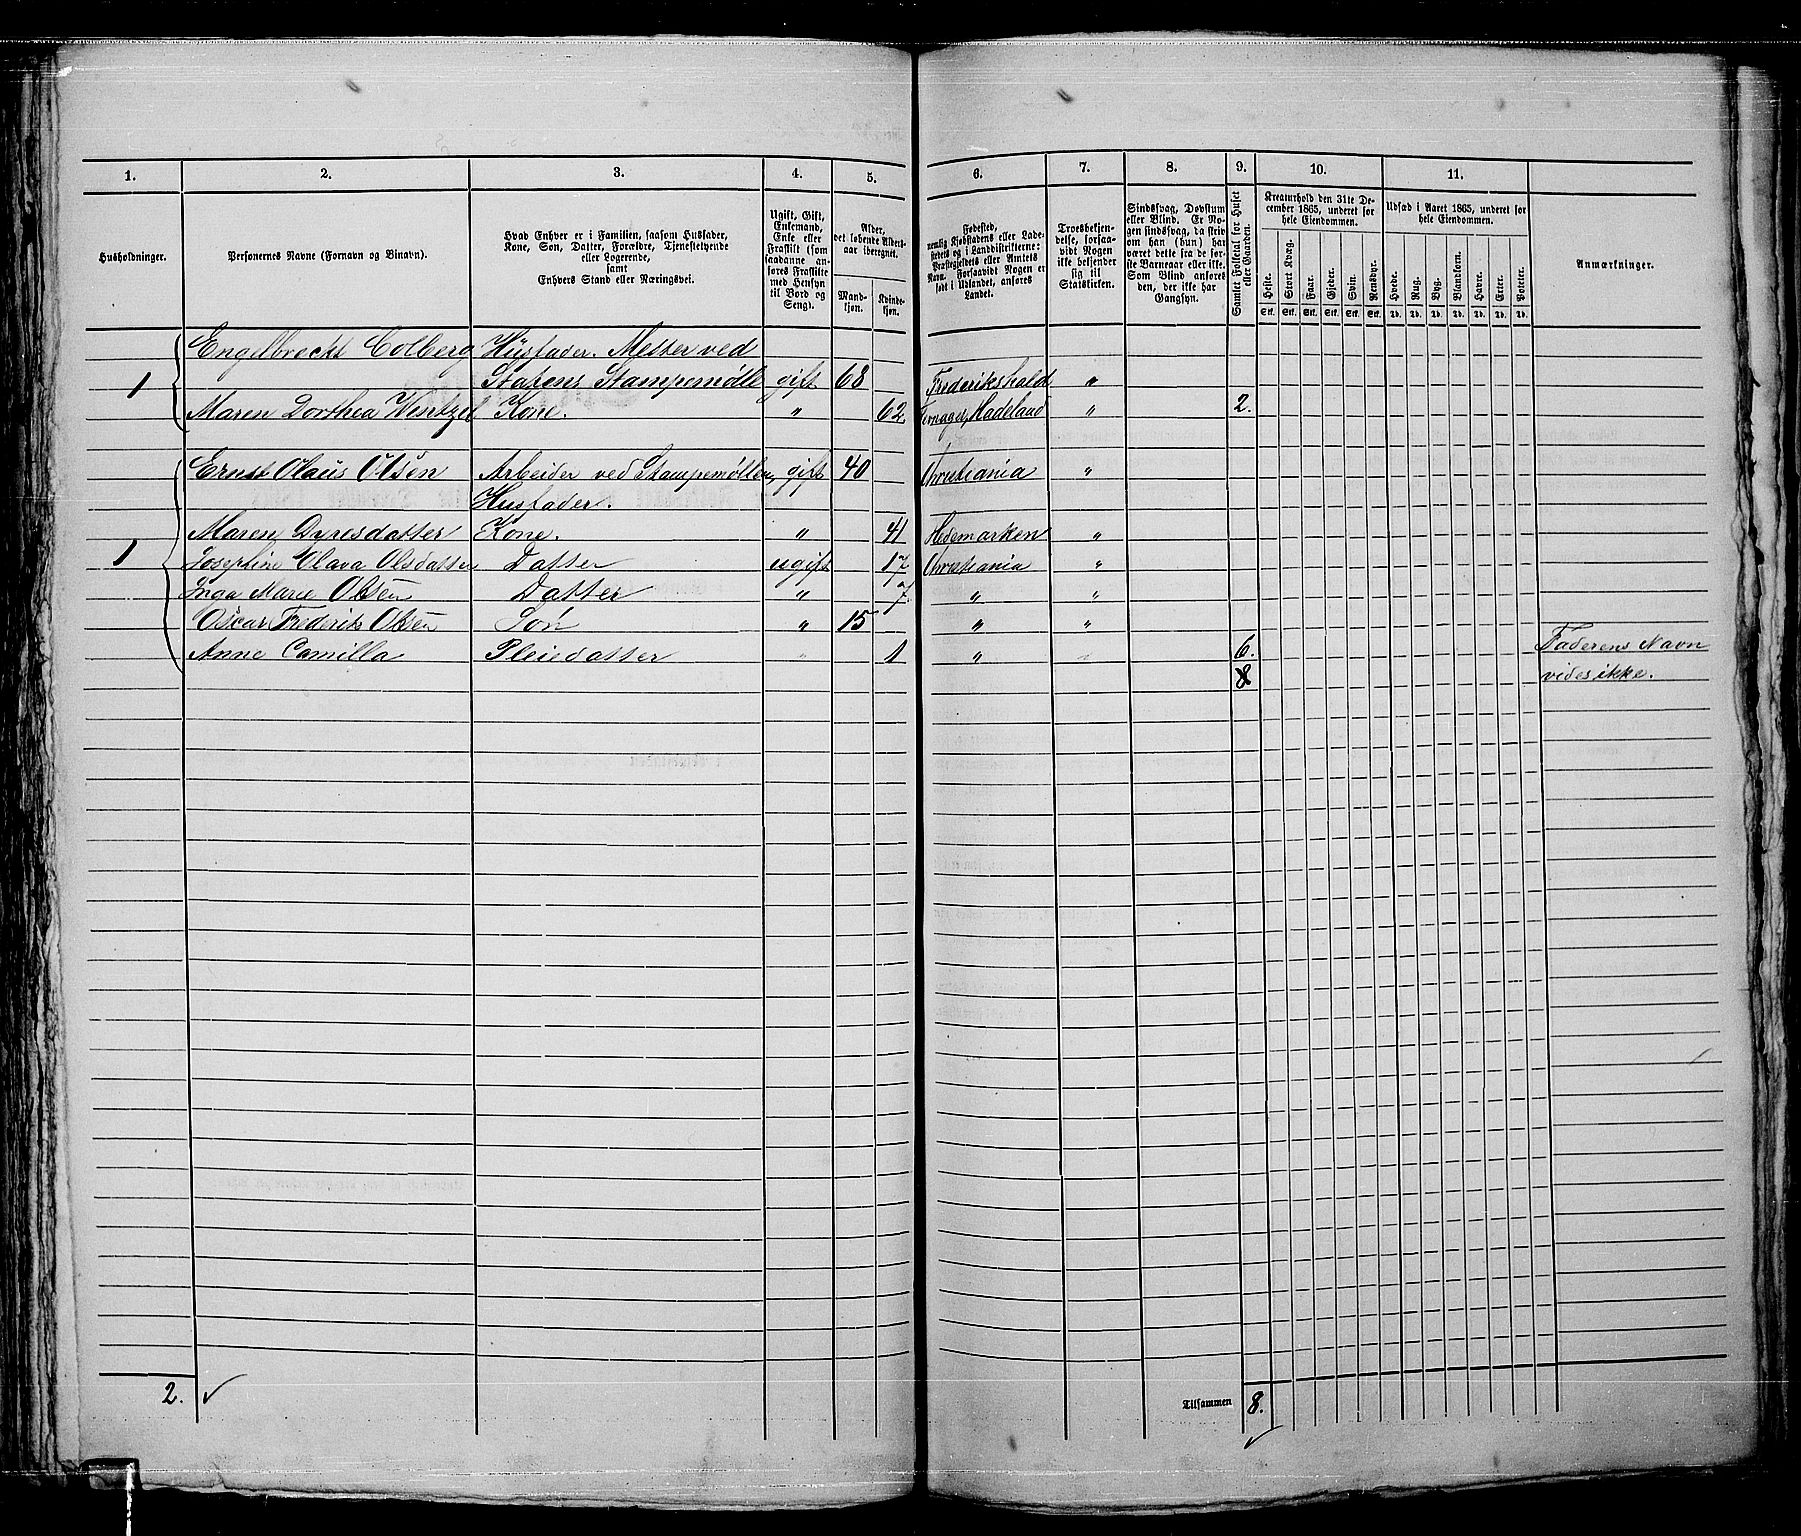 1. 2. 3. 4. 5. 6. 7. 8. 9. 10. 11.
Husholdninger.
Personernes Navne (Fornavn og Binavn).
Hvad Enhver er i Familien, saasom Husfader,
Kone, Søn, Datter, Forældre, Tjenestetyende
eller Logerende,
samt
Enhvers Stand eller Næringsvei.
Ugift, Gift,
Enkemand,
Enke eller
Fraskilt (som
saadanne an-
føres Fraskilte
med Hensyn
til Bord og
Seng).
Alder,
det løbende Alders-
aar iberegnet.
Mand-
kjøn.
Kvinde-
kjøn.
Fødested,
nemlig Kjøbstadens eller Lade-
stedets og i Landdistrikterne:
Præstegjeldets eller Amtets
Navn. Forsaavidt Nogen er
født i Udlandet, anføres
Landet.
Troesbekjen-
delse, forsaa-
vidt Nogen
ikke bekjender
sig til
Statskirken.
Sindssvag, Døvstum
eller Blind. Er No-
gen sindssvag, da skriv
om han (hun) har
været dette fra de før-
ste Barneaar eller ikke.
Som Blind anføres
den, der ikke har
Gangsyn.
Samlet Folketal for Huset
eller Gaarden.
Kreaturhold den 31te De-
cember 1865, underet for
hele Eiendommen.
Heste. Stort Kvæg. Faar. Gjeder. Svin. Rensdyr.
Stk. Stk. Stk. Stk. Stk. Stk.
Udsæd i Aaret 1865, underet for
hele Eiendommen.
Hvede. Rug. Byg. Blandkorn. Havre. Erter. Poteter.
Td. Td. Td. Td. Td. Td. Td.
Anmærkninger.
Engelbrecht Colberg Husfader. Mester ved
1 Statens Stampemølle gift 68 Frederikshald "
Maren Dorthea Wentzel Kone. " 62 Hadeland " 2.
Ernst Olaus Olsen Arbeider ved Stampemøllen, gift 40 Christiania "
Husfader.
Maren Dyresdatter Kone. " 41 Hedemarken "
1 Josephine Olava Olsdatter Datter ugift 17 Christiania "
Inga Marie Olsen Datter " 7. " "
Oscar Frederik Olsen Søn " 15 " "
Anne Camilla Pleiedatter " 1 " " 6. Faderens Navn
8 vides ikke.
2. Tilsammen 8.